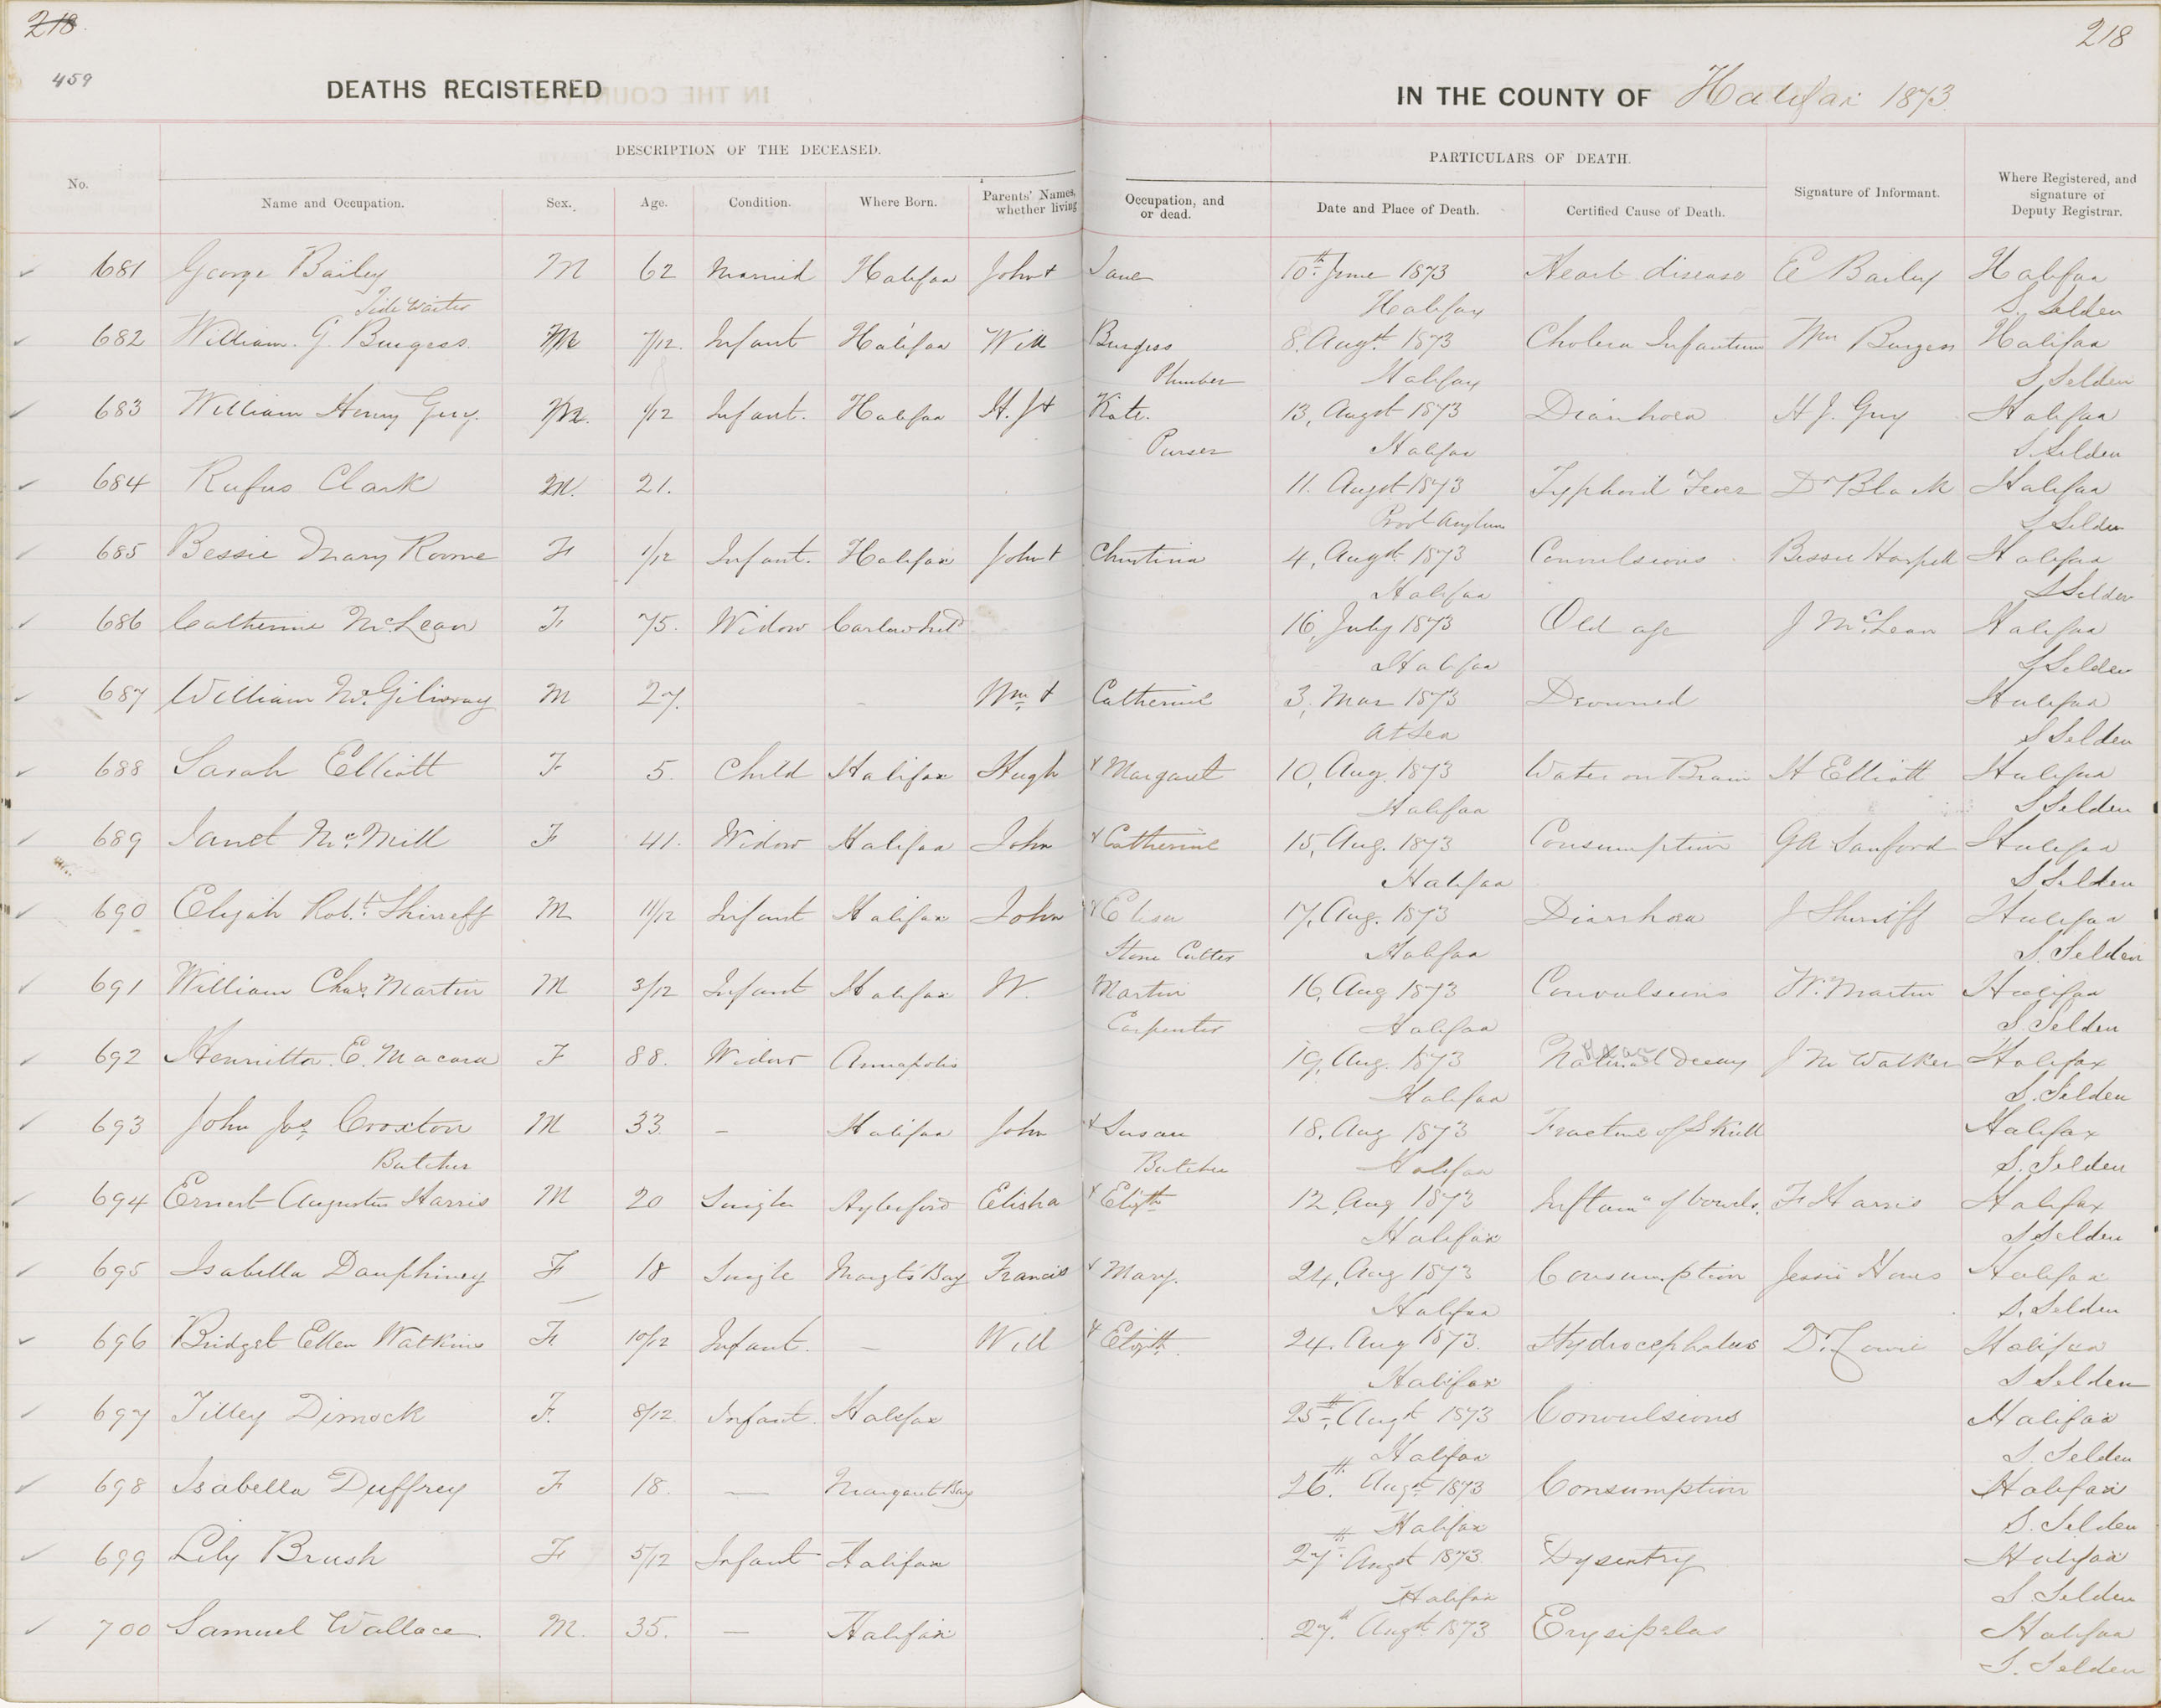 218.
218
459
DEATHS REGISTERED
IN THE COUNTY OF Halifax 1873.
DESCRIPTION OF THE DECEASED.
PARTICULARS OF DEATH.
No. Name and Occupation. Sex. Age. Condition. Where Born. Parents' Names, whether living Occupation, and or dead. Date and Place of Death. Certified Cause of Death. Signature of Informant. Where Registered, and signature of Deputy Registrar.
681 George Bailey M 62 Married Halifax John + Jane 10th June 1873 Heart disease E Bailey Halifax
Tide Waiter Halifax S. Selden
682 William. G. Burgess. M 7/12. Infant Halifax Will Burgess 8. Augt. 1873 Cholera Infantum Wm Burgess Halifax
Plumber Halifax S Selden
683 William Henry Guy. M. 1/12 Infant. Halifax H. J + Kate. 13, Augst 1873 Diarrhoea H J. Guy Halifax
Purser Halifax S. Selden
684 Rufus Clark M. 21. 11. Augst 1873 Typhoid Fever Dr Black Halifax
Provl Asylum S Selden
685 Bessie Mary Roome F 1/12 Infant. Halifax John + Christina 4, Augt. 1873 Convulsions Bessie Harpell Halifax
Halifax S Selden
686 Catherine McLean F 75. Widow Carlow Ireld 16, July 1873 Old age J McLean Halifax
Halifax S Selden
687 William McGilivray M 27. Wm + Catherine 3, Mar 1873 Drowned Halifax
At Sea S Selden
688 Sarah Elliott F 5. Child Halifax Hugh + Margaret 10, Aug. 1873 Water on Brain H Elliott Halifax
Halifax S Selden
689 Janet McMill F 41. Widow Halifax John + Catherine 15, Aug. 1873 Consumption GA Sanford Halifax
Halifax S Selden
690 Elijah Robt. Shirreff M 11/12 Infant Halifax John + Eliza 17, Aug. 1873 Diarrhoea J Shirreff Halifax
Stone Cutter Halifax S. Selden
691 William Chas. Martin M 3/12 Infant Halifax W. Martin 16, Aug 1873 Convulsions W. Martin Halifax
Carpenter Halifax S. Selden
692 Henrietta. E. Macara F 88. Widow Annapolis 19, Aug. 1873 Natural Decay J M Walker Halifax
Halifax S. Selden
693 John Jas Croxton M 33. — Halifax John + Susan 18, Aug 1873 Fracture of Skull Halifax
Butcher Butcher Halifax S. Selden
694 Ernest Augustus Harris M 20 Single Aylesford Elisha + Elizth 12, Aug 1873 Inflamn of bowels. F Harris Halifax
Halifax S Selden
695 Isabella Dauphiney F 18 Single Margts Bay Francis + Mary. 24, Aug 1873 Consumption Jessie Hows Halifax
Halifax S. Selden
696 Bridget Ellen Watkins F. 10/12 Infant. — Will + Elizth. 24. Aug 1873. Hydrocephalus Dr. Cowie Halifax
Halifax S Selden
697 Tilley Dimock F. 8/12. Infant. Halifax 25th, Augt 1873 Convulsions Halifax
Halifax S. Selden
698 Isabella Duffrey F 18. — Margarets Bay 26th. Augst 1873 Consumption Halifax
Halifax S. Selden
699 Lily Brush F 5/12 Infant Halifax 27th. Augst 1873 Dysentry Halifax
Halifax S. Selden
700 Samuel Wallace. M. 35. — Halifax 27th. Augt. 1873 Erysipelas Halifax
S. Selden